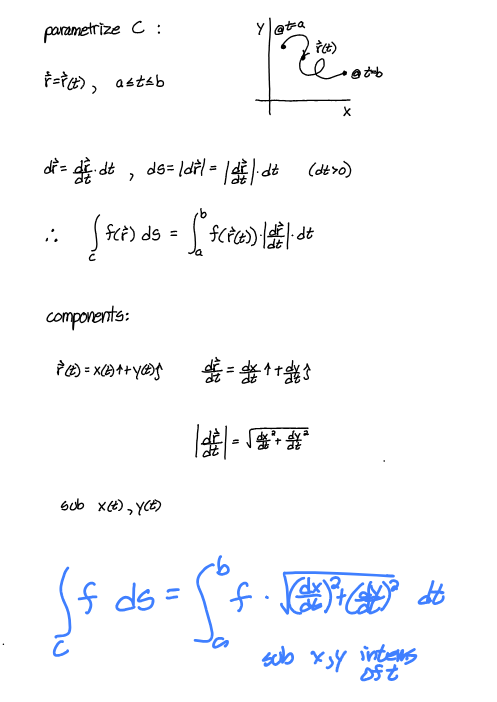 parametrize C :
Y
@t=a
r⃗(t)
@t=b
X
r⃗=r⃗(t) , a≤t≤b
dr⃗ = dr⃗/dt · dt , ds = |dr⃗| = |dr⃗/dt| · dt (dt>0)
∴ ∫_C f(r⃗) ds = ∫_a^b f(r⃗(t)) · |dr⃗/dt| · dt
components:
r⃗(t) = x(t)î + y(t)ĵ dr⃗/dt = dx/dt î + dy/dt ĵ
|dr⃗/dt| = √(dx/dt² + dy/dt²)
sub x(t), y(t)
∫_C f ds = ∫_a^b f · √((dx/dt)² + (dy/dt)²) dt
sub x,y in terms
of t